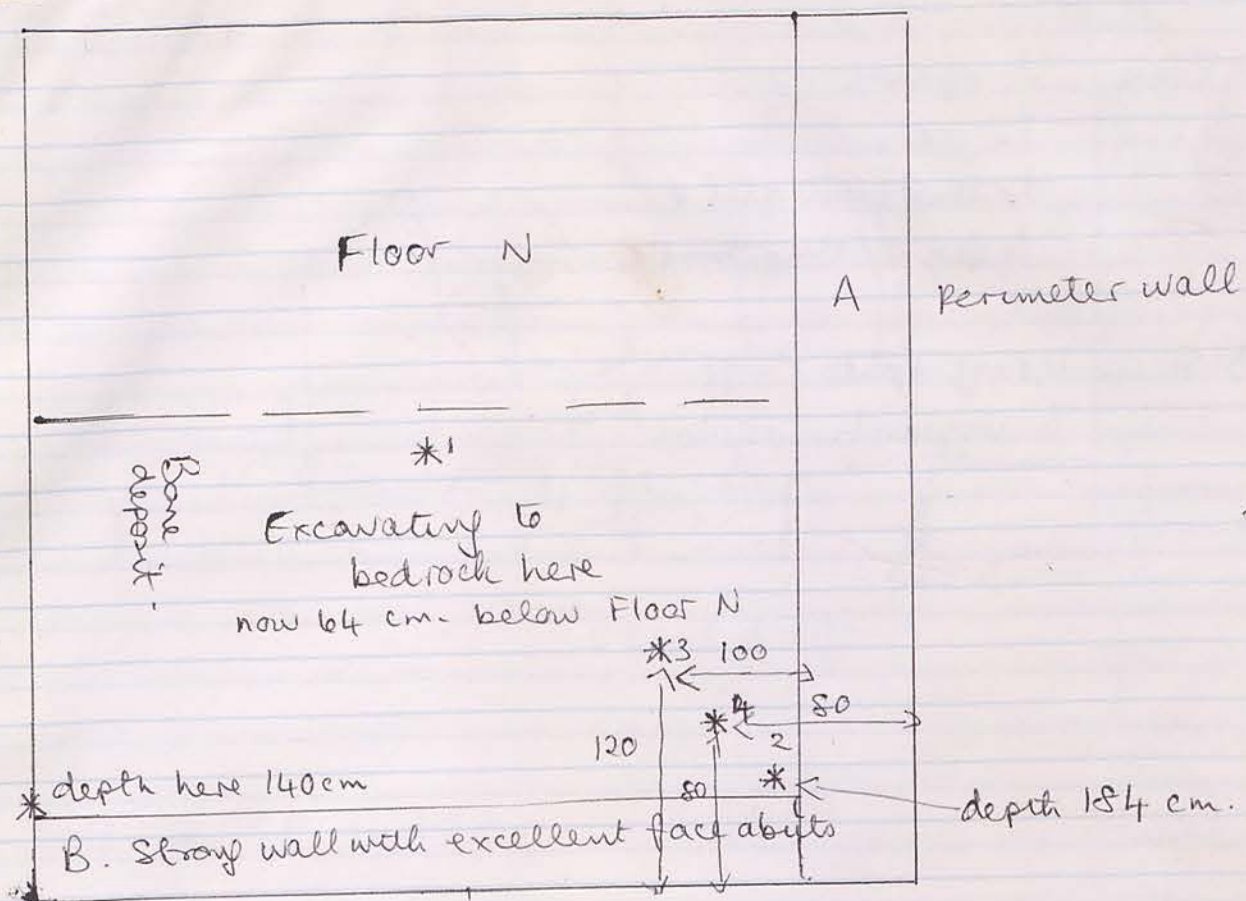 Floor N
A perimeter wall
*1
Bone
deposit.
Excavating to
bedrock here
now 64 cm. below Floor N
*3 100
*4 80
120
2
*
80
* depth here 140cm
depth 184 cm.
B. Strong wall with excellent face abuts